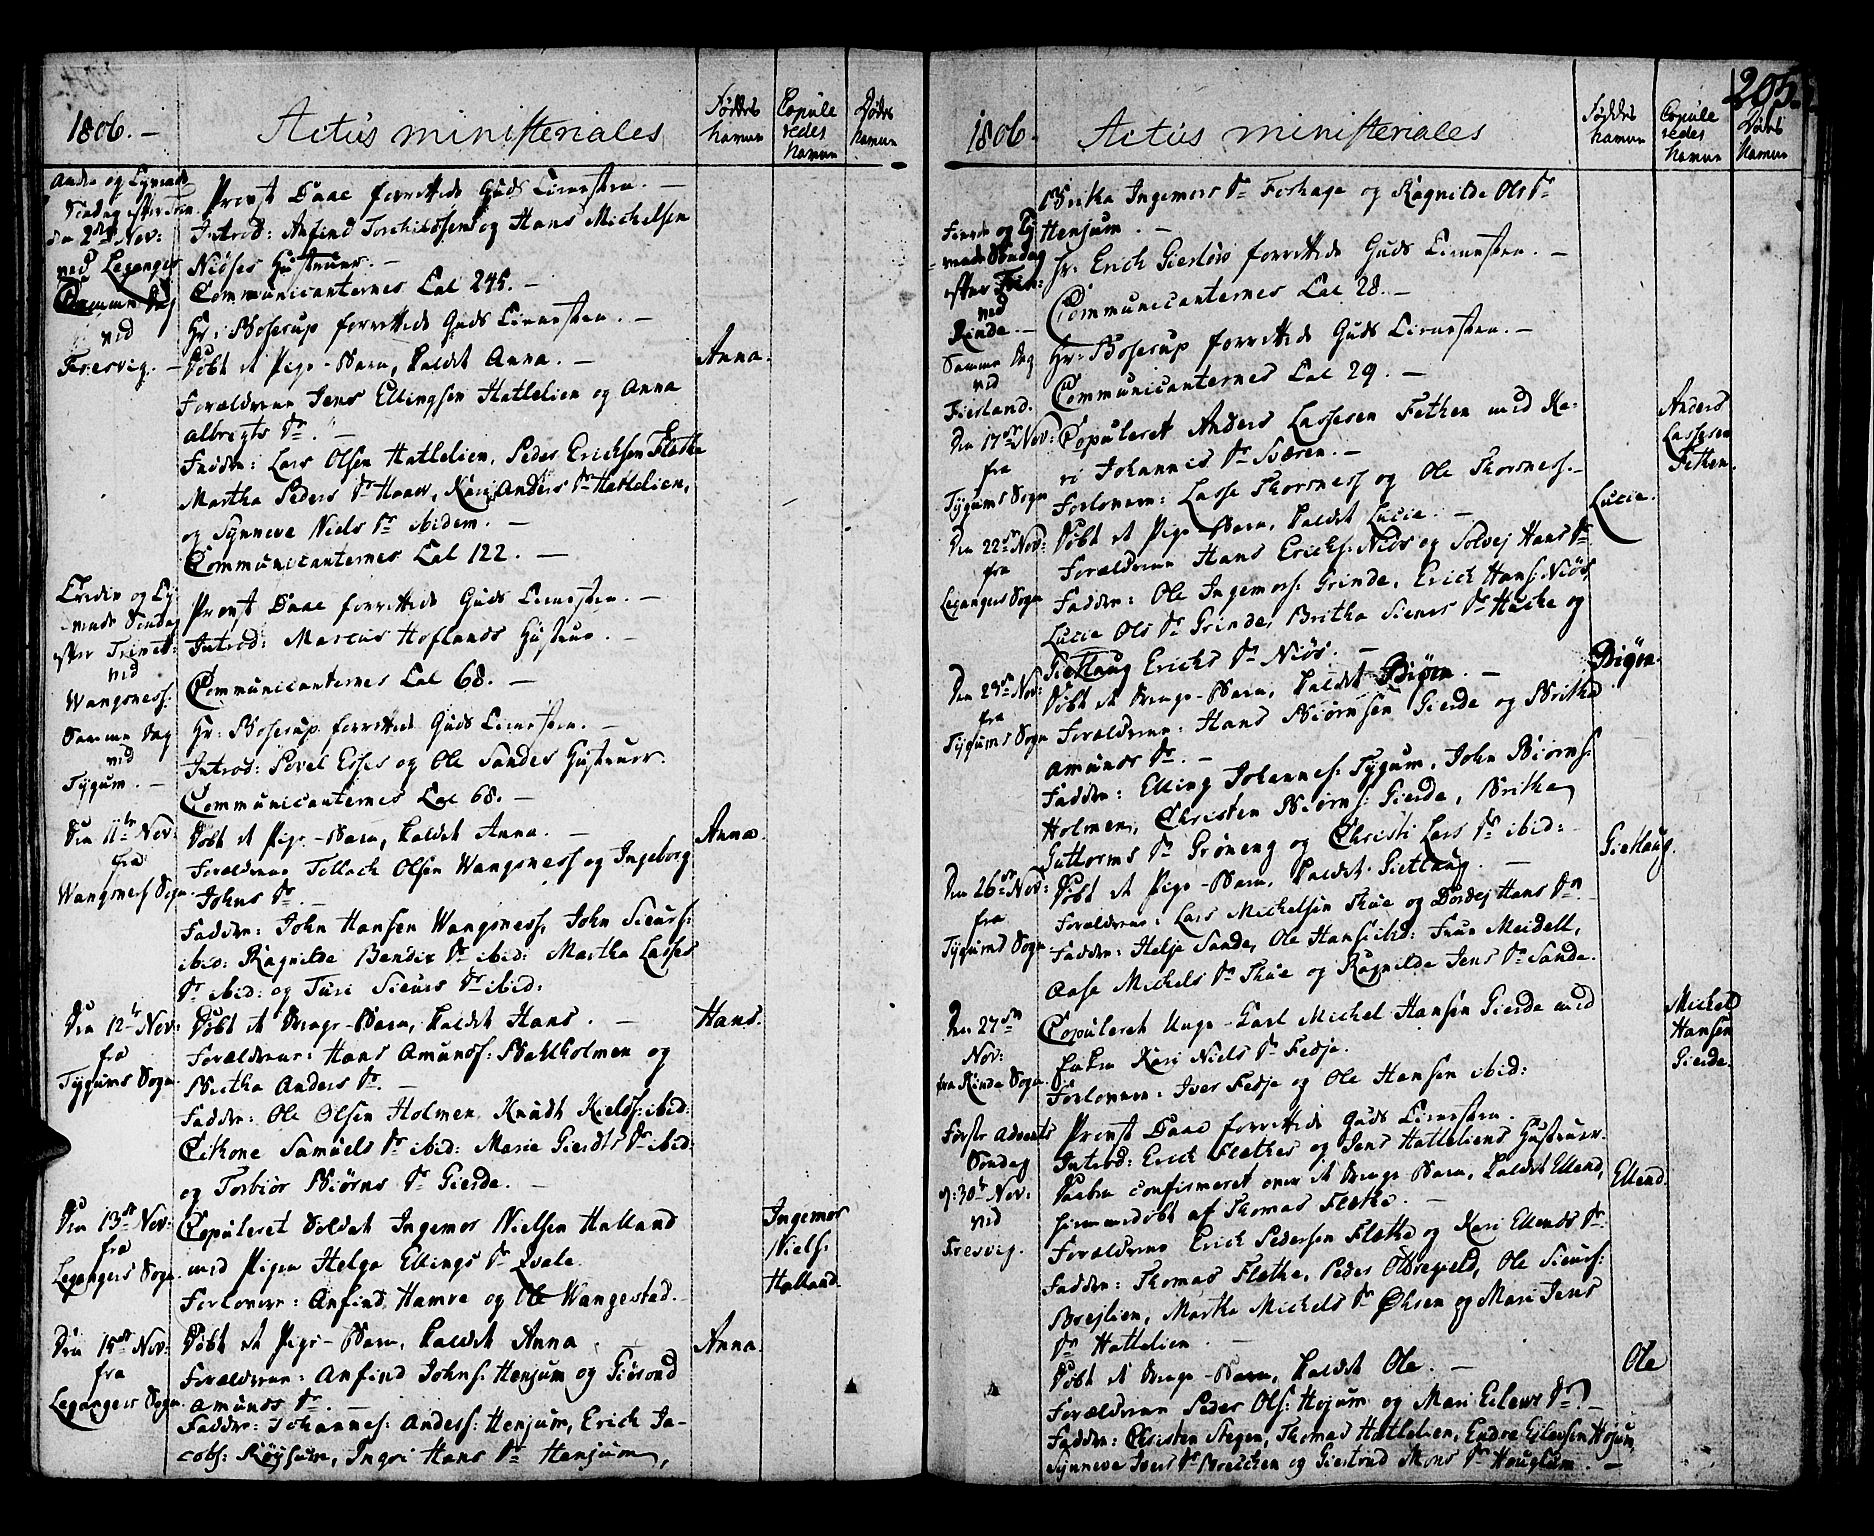 1806. —
Actus ministeriales
Føddes Navne
Copuleredes Navne
Dødes Navne
Anden og Tyvende Søndag efter Trin: den 2den Nov: ved Leganger
Provst Daae forrettede Guds Tienesten. —
Introd: Anfind Torchildsens og Hans Michelsen
Niøses Hustruer. —
Communicanternes Tal 245. —
Samme Dag ved Fresvig. —
Hr: Boserup forrettede Guds Tienesten. —
Døbt et Pige-Barn, kaldet Anna. —
Anna.
Forældrene Jens Ellingsen Hattelien og Anna
Albregts Dr. —
Faddere: Lars Olsen Hattelien, Peder Erichsen Flæthe
Martha Peders Dr Haaer, Kari Anders Dr Hattelien,
og Synneve Niels Dr ibidem. —
Communicanternes Tal 122. —
Tredie og Tyvende Søndag efter Trinit: ved Wangsness.
Provst Daae forrettede Guds Tienesten. —
Introd: Marcus Hoflands Hustrue. —
Communicanternes Tal 68. —
Samme Dag ved Tygum. —
Hr: Boserup forrettede Guds Tienesten. —
Introd: Povel Esses og Ole Sandes Hustruer.
Communicanternes Tal 68. —
Den 11te Nov: fra Wangsness Sogn.
Døbt et Pige-Barn, kaldet Anna. —
Anna.
Forældrene Tollach Olsen Wangsness og Ingeborg
Johns Dr. —
Faddere: John Hansen Wangsness, John Siurs:
ibid: Ragnilde Bendix Dr ibid: Martha Lasses
Dr ibid: og Turi Siurs Dr ibid:
Den 12te Nov: fra Tygums Sogn.
Døbt et Drenge-Barn, kaldet Hans. —
Hans.
Forældrene: Hans Amunds: Bahlholmen og
Britha Anders Dr. —
Faddere: Ole Olsen Holmen, Knudt Kields: ibid:
Samuels Dr ibid: Marie Gierdts Dr ibid:
og Torbiør Biørns Dr Gierde. —
Den 13de Nov: fra Legangers Sogn.
Copuleret Soldat Ingemor Nielsen Halland
Ingemor Niels: Halland.
med Pigen Helga Ellings Dr Qvale.
Forlovere: Anfind Hamre og Ole Wangestad.
Den 15de Nov: fra Legangers Sogn.
Døbt et Pige-Barn, kaldet Anna.
Anna.
Forældrene: Anfind Johns: Henjum og Giørond
Amunds Dr. —
Faddere: Johannes: Anders: Henjum, Erich Ja-
cobs: Røysum, Ingri Hans Dr Henjum,
205.
1806.
Actus ministeriales
Føddes Navne
Copuleredes Navne
Dødes Navne
Britha Ingemors Dr Forhage og Ragnilde Ols Dr
Henjum. —
Fierde og Tyvende Søndag efter Trin: ved Rinde. —
Hr. Erich Gierløw forrettede Guds Tienesten. —
Communicanternes Tal 28. —
Samme Dag ved Fierland.
Hr: Boserup forrettede Guds Tienesten. —
Communicanternes Tal 29. —
Den 17de Nov: fra Tygums Sogn
Copuleret Anders Lassesen Fethen med Ka-
Anders Lassesen Fethen.
ri Johannis Dr Sværen. —
Forlovere: Lasse Thorsness og Ole Thorsness. —
Den 22de Nov: fra Legangers Sogn
Døbt et Pige-Barn, kaldet Lucie. —
Lucie.
Forældrene Hans Erichs: Niøs og Solvej Hans Dr
Faddere: Ole Ingemors: Grinde, Erich Hans: Niøs,
Lucie Ols Dr Grinde, Britha Siurs Dr Huske og
Giertlaug Erichs Dr Niøs. —
Den 23de Nov: fra Tygums Sogn
Døbt et Drenge-Barn, kaldet Biørn. —
Biørn.
Forældrene: Hans Biørnsen Gierde og Britha
Amunds Dr. —
Faddere: Elling Johannes: Tygum, John Biørns:
Holmen, Christen Biørns: Gierde, Britha
Guttorms Dr Grøneng og Christi Lars Dr ibid:
Den 26de Nov: fra Tygums Sogn.
Døbt et Pige-Barn, kaldet Giertlaug. —
Giertlaug.
Forældrene: Lars Michelsen Thue og Dordej Hans Dr
Faddere: Helje Sande, Ole Hans: ibid: Frue Meidell,
Aase Michels Dr Thue og Ragnilde Jens Dr Sande.
Den 27de Nov: fra Rinde Sogn
Copuleret Unge-Karl Michel Hansen Gierde med
Michel Hansen Gierde.
Enken Kari Niels Dr Fedje.
Forlovere: Iver Fedje og Ole Hansen ibid:
Første Advents Søndag d: 30te Nov: ved Fresvig.
Provst Daae forrettede Guds Tienesten.
Introd: Erich Flæthes og Jens Hatteliens Hustruer.
Daaben confirmeret over et Drenge Barn, kaldet Ellend,
Ellend.
hiemmedøbt af Thomas Flæthe. —
Forældrene Erich Pedersen Flæthe og Kari Ellends Dr
Faddere: Thomas Flæthe, Peder Oldregield, Ole Siurs:
Brejlien, Martha Michels Dr Øhren og Mari Jens
Dr Hattelien. —
Døbt et Drenge-Barn, kaldet Ole. —
Ole
Forældrene Peder Ols: Hojum og Mari Eilevs Dr —
Faddere: Christen Stegen, Thomas Hattelien, Endre Eilevsen Hojum,
Synneve Ivers Dr Brecken og Giertrud Mons Dr Houglum. —